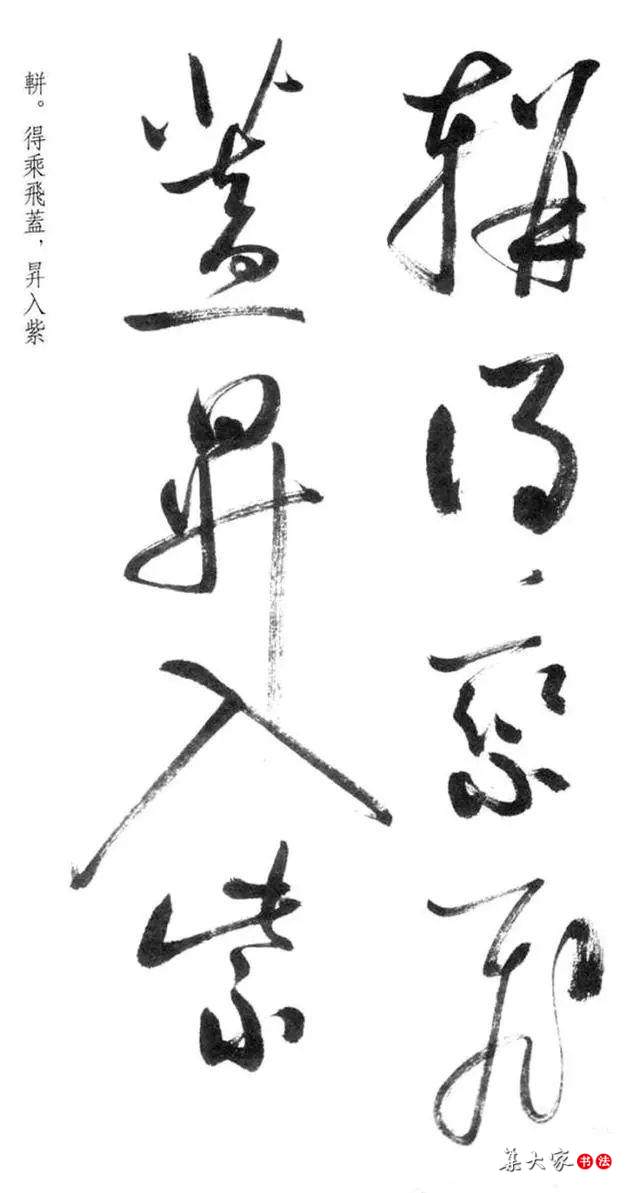 軿得乘飛
蓋昇入紫
軿。得乘飛蓋，昇入紫
集大家书法